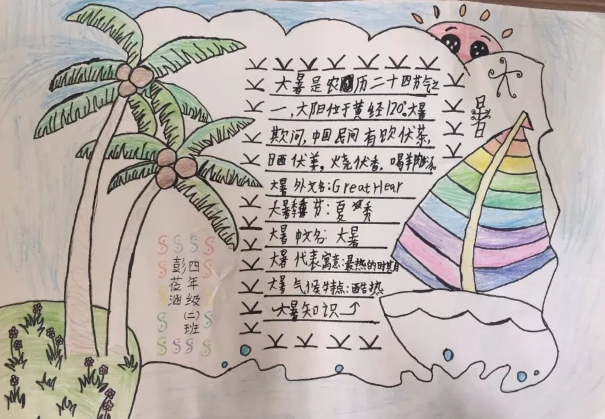 大暑
大暑是农历二十四节气之
一,大阳位于黄经120°.大暑
欺间,中国民间有饮伏茶,
晒伏姜,烧伏香,喝羊肉汤
大暑外文名:Great Hear
大暑季节:夏秀
大暑中文名:大暑
大暑代表寓意:最热的时期
大暑气候特点:酷热
大暑知识
四年级(二)班
彭莅涵